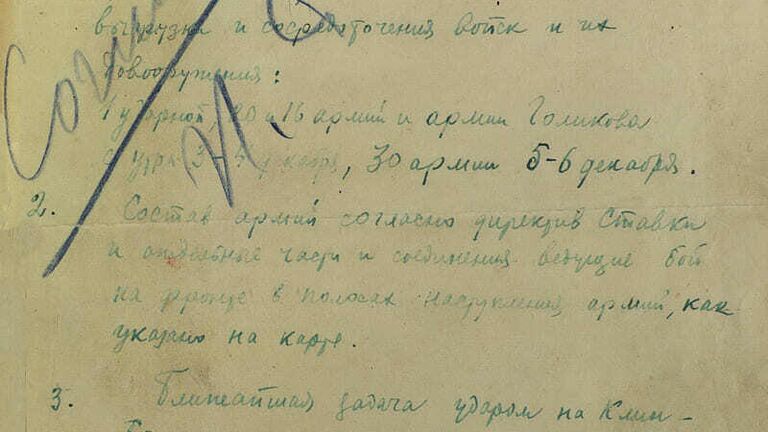 выгрузки и сосредоточения войск и их
довооружения:
1 ударной, 20 и 16 армий и армии Голикова
с утра 3-5 декабря, 30 армии 5-6 декабря.
2. Состав армий согласно директив Ставки
и отдельные части и соединения ведущие бой
на фронте в полосах наступления армий, как
указано на карте.
3. Ближайшая задача ударом на Клин-